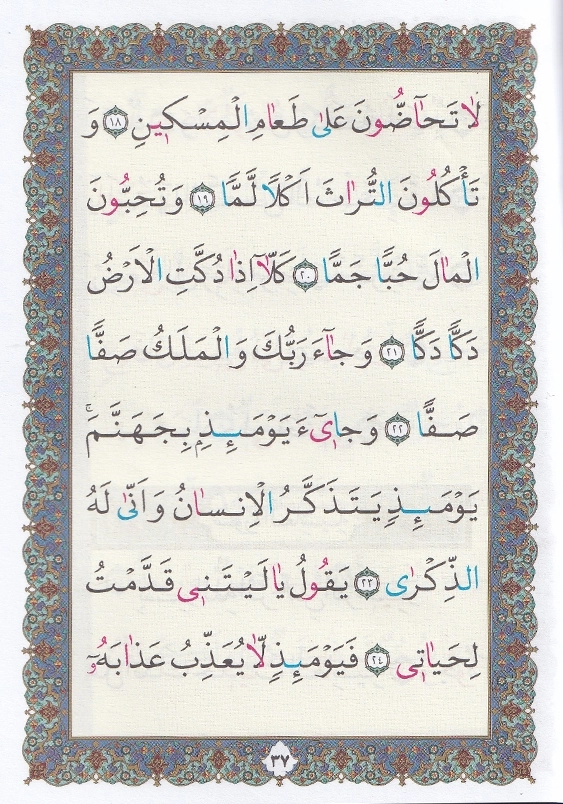 لَا تَحَاضُّونَ عَلَى طَعَامِ الْمِسْكِينِ ﴿١٨﴾ وَ
تَأْكُلُونَ التُّرَاثَ اَكْلًا لَّمًّا ﴿١٩﴾ وَ تُحِبُّونَ
الْمَالَ حُبًّا جَمًّا ﴿٢٠﴾ كَلَّآ اِذَا دُكَّتِ الْاَرْضُ
دَكًّا دَكًّا ﴿٢١﴾ وَ جَآءَ رَبُّكَ وَ الْمَلَكُ صَفًّا
صَفًّا ﴿٢٢﴾ وَ جِایٓءَ يَوْمَئِذٍ بِجَهَنَّمَ ۚ
يَوْمَئِذٍ يَتَذَكَّرُ الْاِنسَانُ وَ اَنّٰى لَهُ
الذِّكْرٰى ﴿٢٣﴾ يَقُولُ يَا لَيْتَنِي قَدَّمْتُ
لِحَيَاتِي ﴿٢٤﴾ فَيَوْمَئِذٍ لَّا يُعَذِّبُ عَذَابَهُۥٓ
٣٧